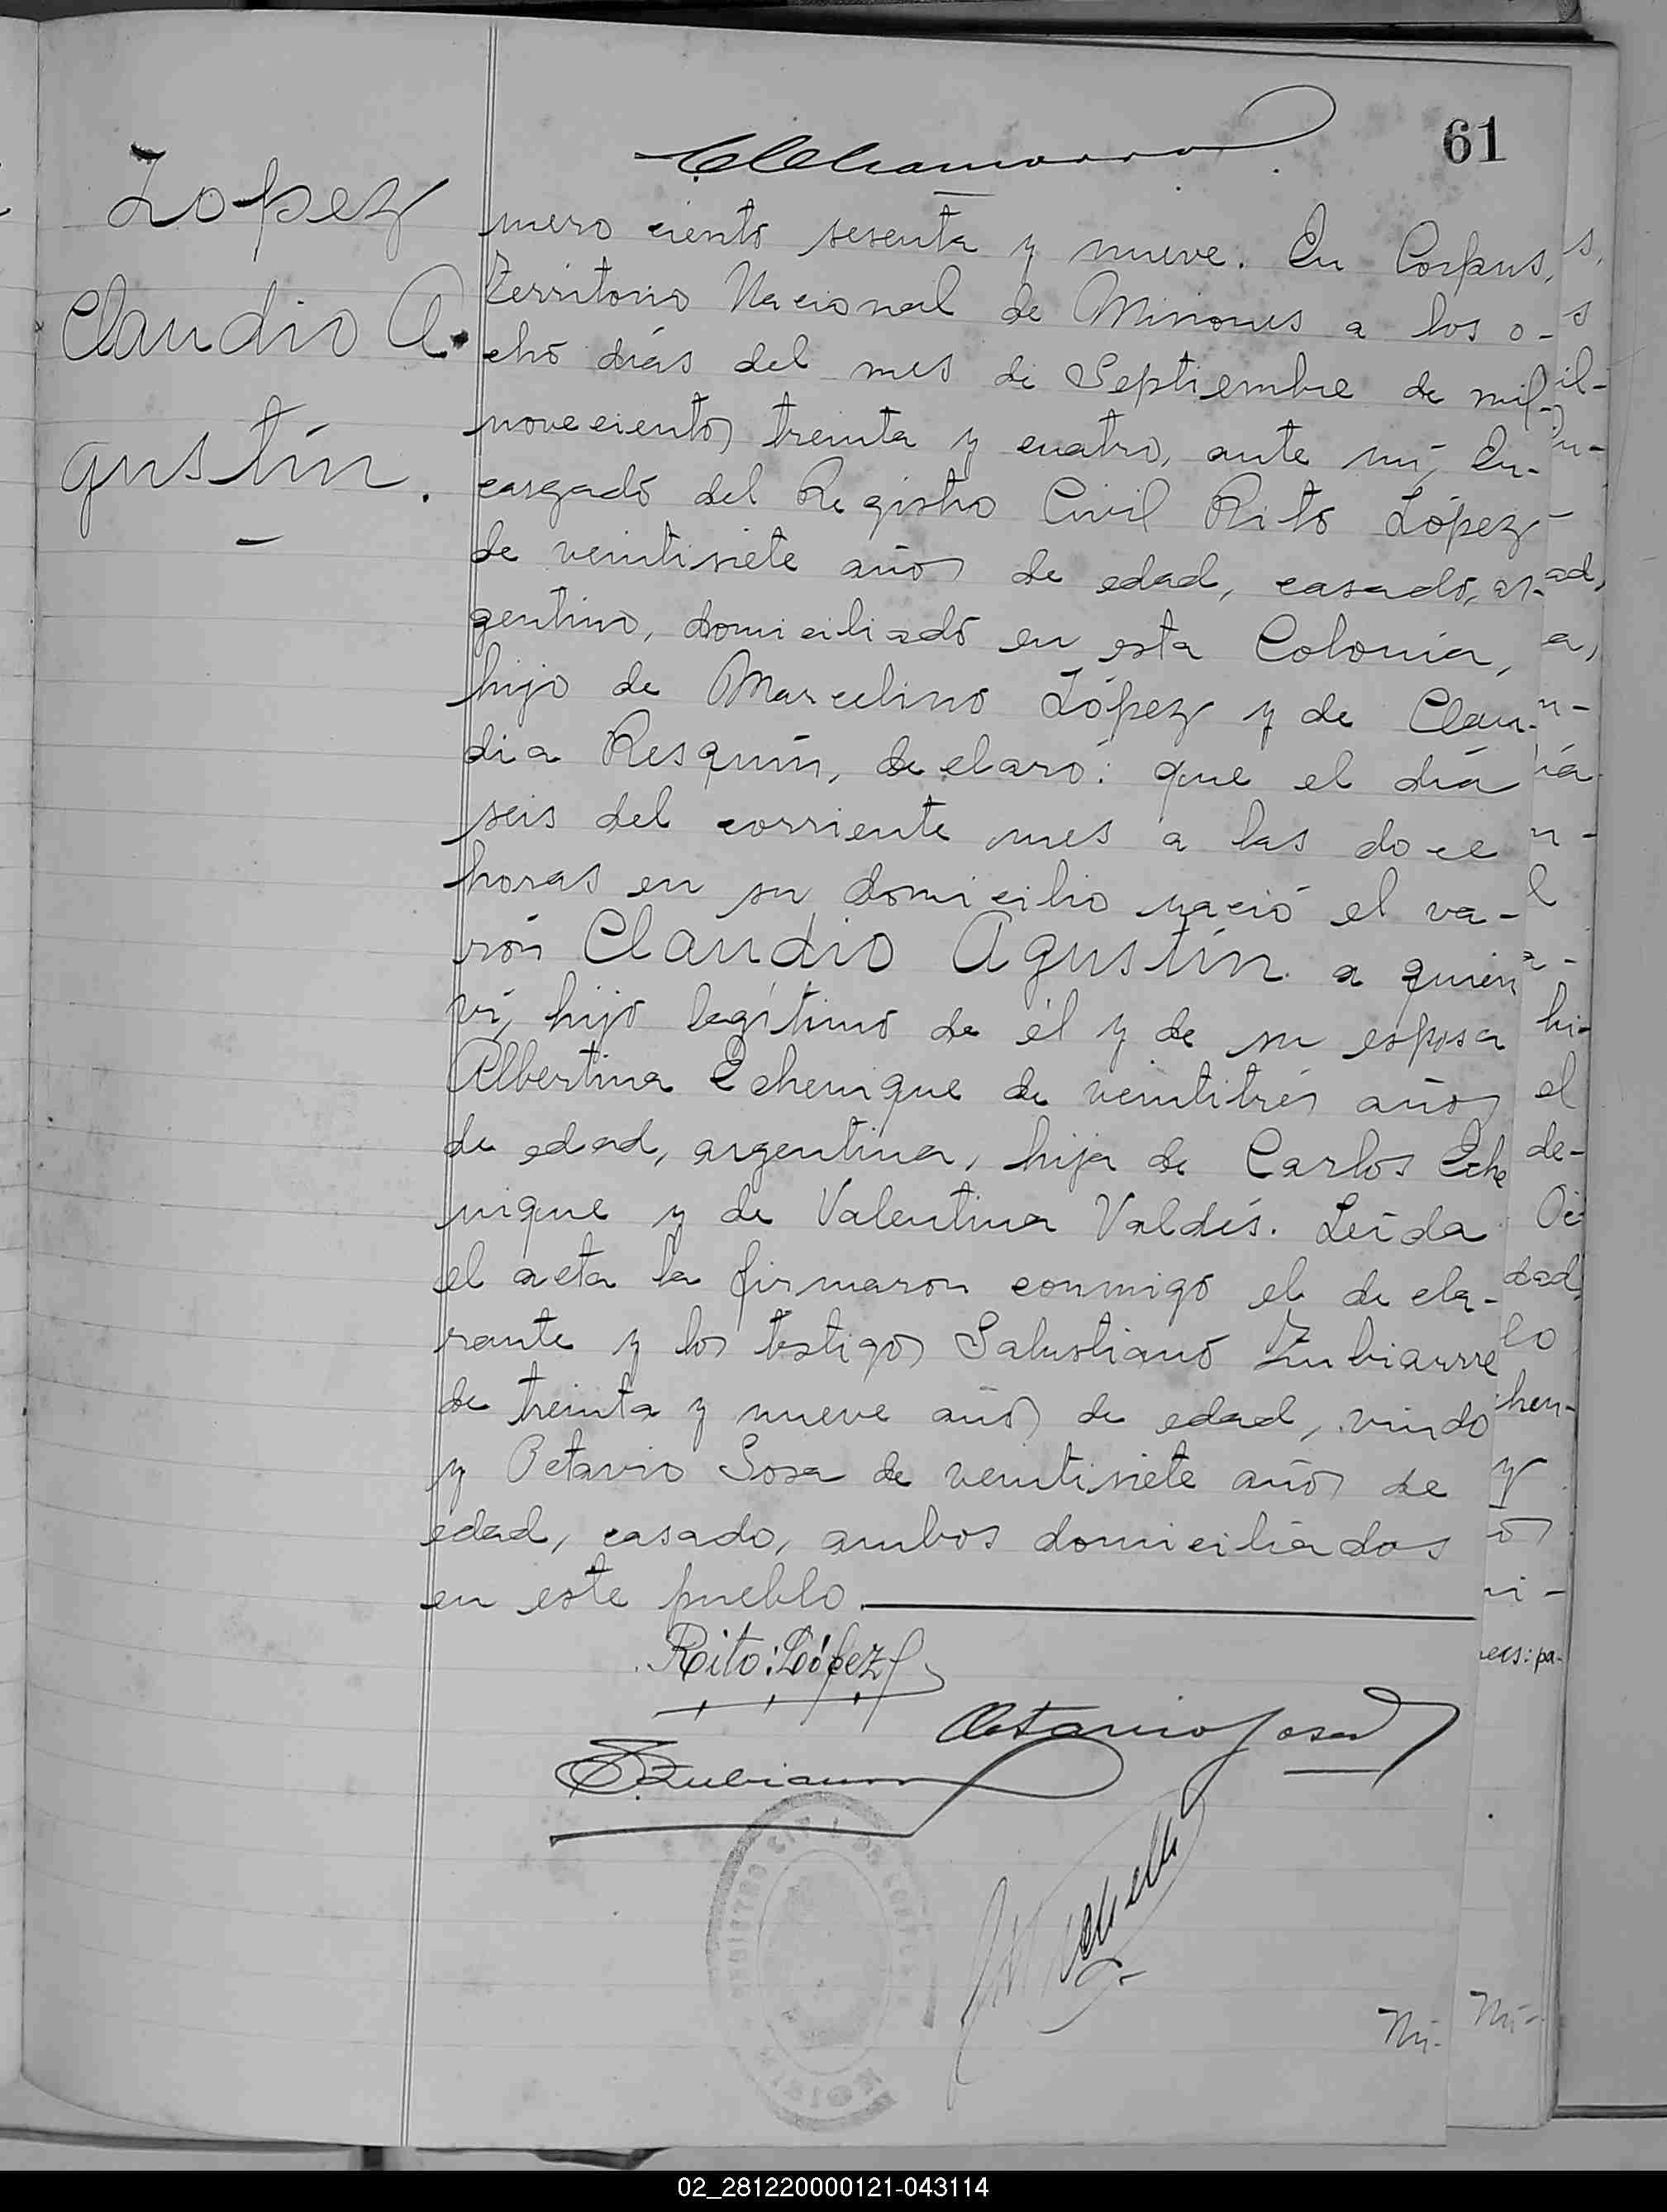 61
Lopez
Claudio A.
gustín.
mero ciento sesenta y nueve. En Corpus,
Territorio Nacional de Misiones a los o-
cho días del mes de Septiembre de mil
novecientos treinta y cuatro, ante mí, En-
cargado del Registro Civil Rito López
de veintisiete años de edad, casado, ar-
gentino, domiciliado en esta Colonia,
hijo de Marcelino López y de Clau-
dia Resquín, declaró: que el día
seis del corriente mes a las doce
horas en su domicilio nació el va-
rón Claudio Agustín a quien
vi, hijo legítimo de él y de su esposa
Albertina Echenique de veintitrés años
de edad, argentina, hija de Carlos Eche
nique y de Valentina Valdés. Leída
el acta la firmaron conmigo el decla-
rante y los testigos Salustiano Zubiaurre
de treinta y nueve años de edad, viudo
y Octavio Sosa de veintisiete años de
edad, casado, ambos domiciliados
en este pueblo.
Rito López
Octavio Sosa
S. Zubiaurre
Nú-
Nú-
02_281220000121-043114